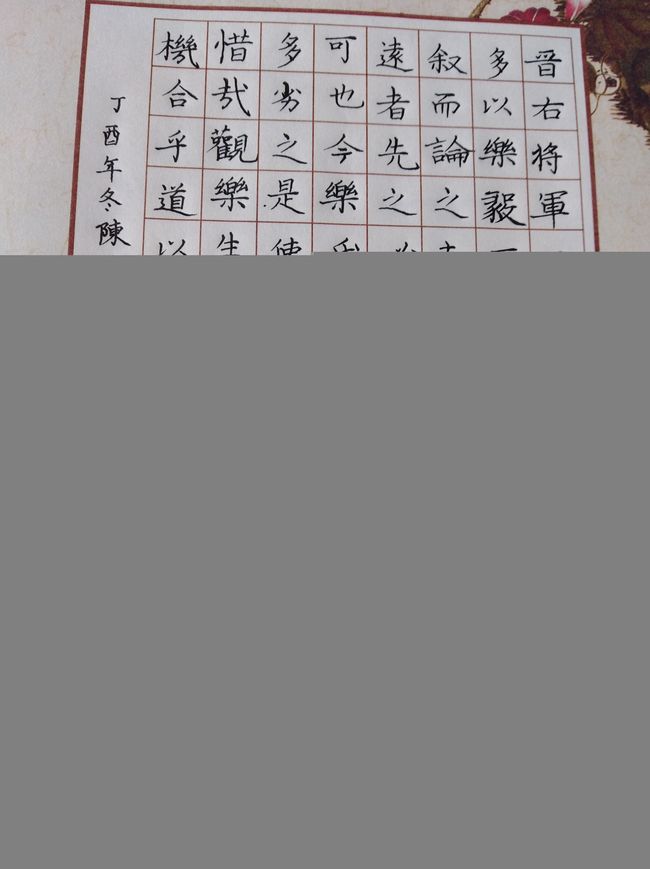 晋右将軍
多以樂毅
叙而論之
遠者先之
可也今樂
多劣之是使
惜哉觀樂生
機合乎道以
丁酉年冬陳